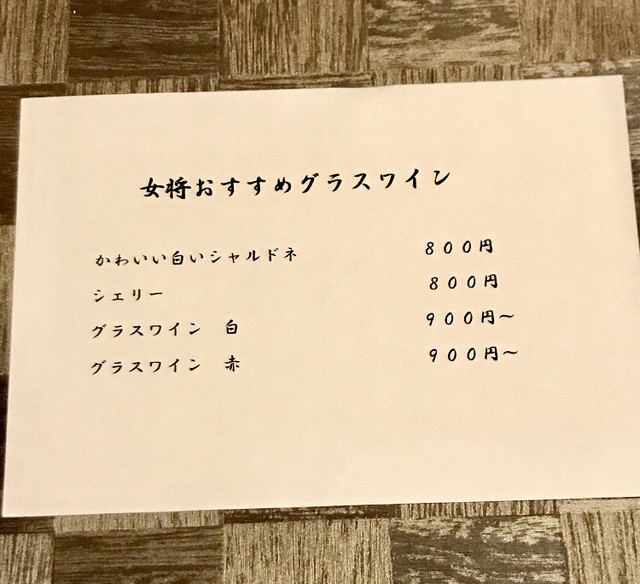 女将おすすめグラスワイン
かわいい白いシャルドネ　８００円
シェリー　８００円
グラスワイン　白　９００円～
グラスワイン　赤　９００円～